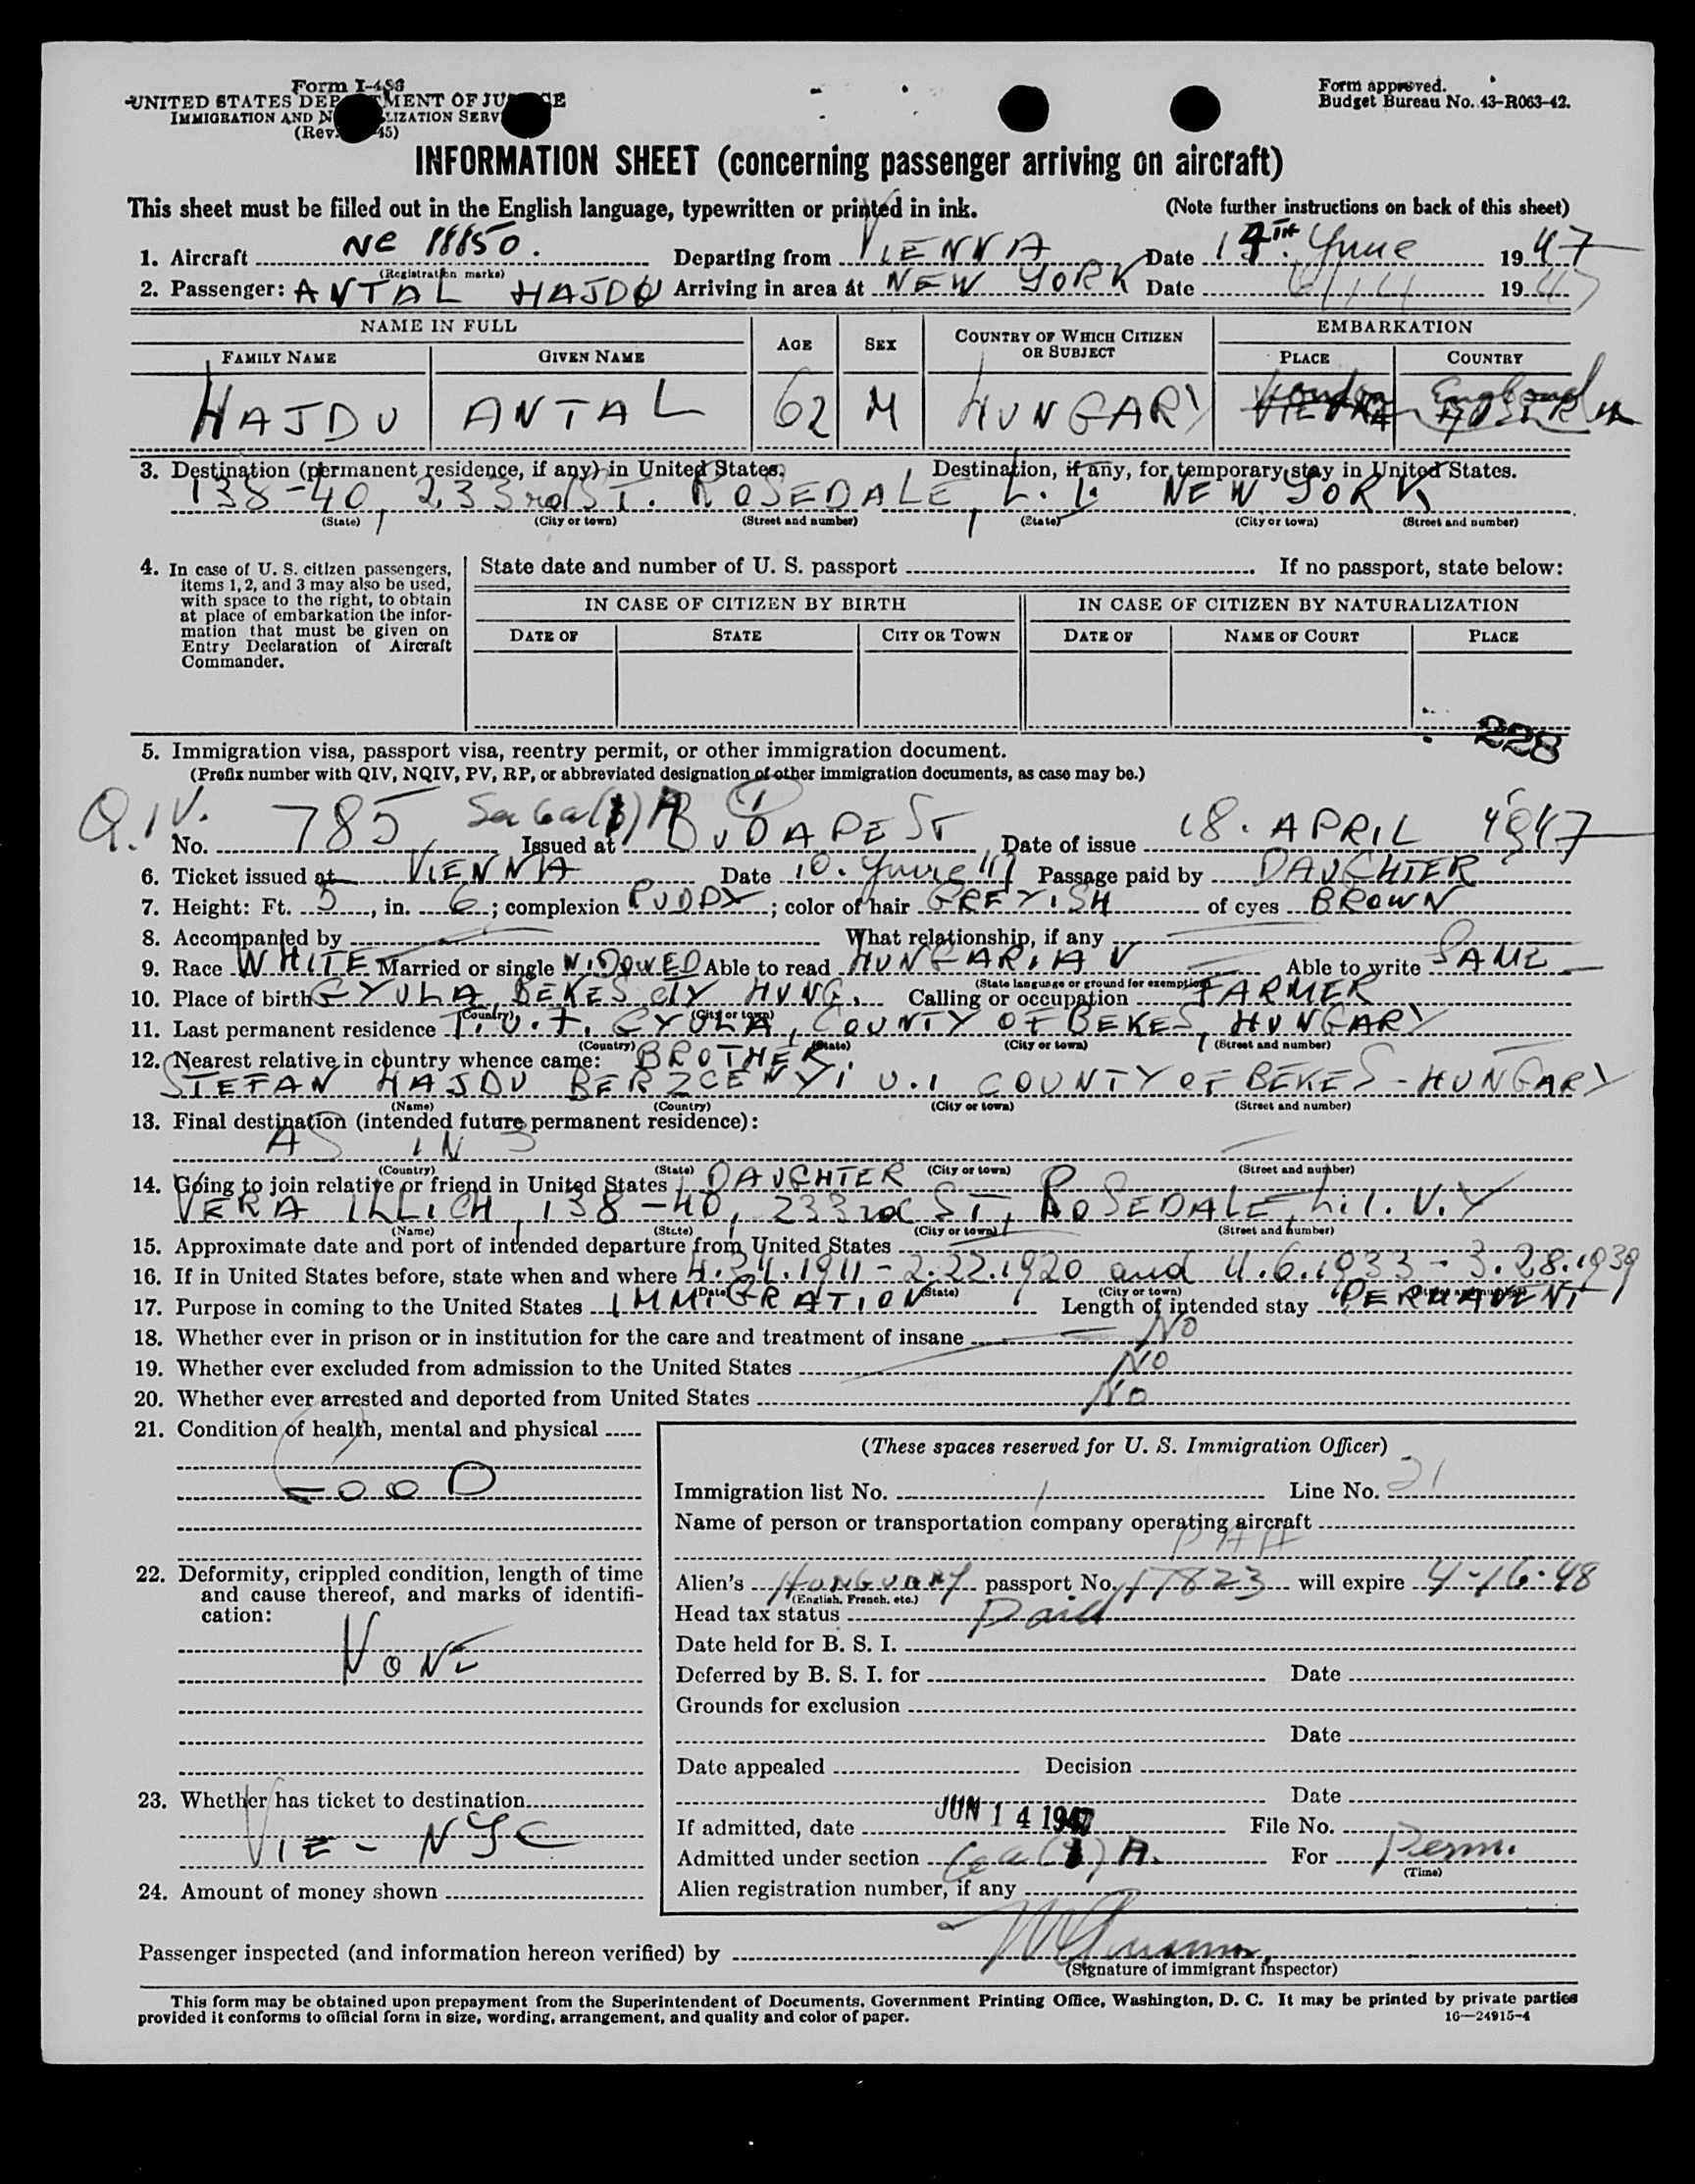 Form I-466
UNITED STATES DEP MENT OF JU CE
IMMIGRATION AND N LIZATION SERV
(Rev. 45)
Form approved.
Budget Bureau No. 43-R063-42.
INFORMATION SHEET (concerning passenger arriving on aircraft)
This sheet must be filled out in the English language, typewritten or printed in ink. (Note further instructions on back of this sheet)
1. Aircraft NC 88850. Departing from VIENNA Date 14TH. Yune 1947
(Registration marks)
2. Passenger: ANTAL HAJDU Arriving in area at NEW YORK Date 6/14 1947
NAME IN FULL AGE SEX COUNTRY OF WHICH CITIZEN OR SUBJECT EMBARKATION
FAMILY NAME GIVEN NAME PLACE COUNTRY
HAJDU ANTAL 62 M HUNGARY VIENNA London AUSTRIA England
3. Destination (permanent residence, if any) in United States. Destination, if any, for temporary stay in United States.
138-40, 233rd ST. ROSEDALE, L. I. NEW YORK
(State) (City or town) (Street and number) (State) (City or town) (Street and number)
4. In case of U. S. citizen passengers, items 1, 2, and 3 may also be used, with space to the right, to obtain at place of embarkation the information that must be given on Entry Declaration of Aircraft Commander.
State date and number of U. S. passport If no passport, state below:
IN CASE OF CITIZEN BY BIRTH IN CASE OF CITIZEN BY NATURALIZATION
DATE OF STATE CITY OR TOWN DATE OF NAME OF COURT PLACE
228
5. Immigration visa, passport visa, reentry permit, or other immigration document.
(Prefix number with QIV, NQIV, PV, RP, or abbreviated designation of other immigration documents, as case may be.)
Q.IV. No. 785 Sec 6a(1)A Issued at BUDAPEST Date of issue 18. APRIL 1947
6. Ticket issued at VIENNA Date 10. Yune 47 Passage paid by DAUGHTER
7. Height: Ft. 5, in. 6; complexion RUDDY; color of hair GREYISH of eyes BROWN
8. Accompanied by What relationship, if any
9. Race WHITE Married or single WIDOWED Able to read HUNGARIAN Able to write SAME
(State language or ground for exemption)
10. Place of birth GYULA, BEKES CTY HUNG. Calling or occupation FARMER
(Country) (City or town)
11. Last permanent residence GYULA, COUNTY OF BEKES, HUNGARY
(Country) (State) (City or town) (Street and number)
12. Nearest relative in country whence came: BROTHER
STEFAN HAJDU BERZCENYI U.1 COUNTY OF BEKES - HUNGARY
(Name) (Country) (City or town) (Street and number)
13. Final destination (intended future permanent residence):
AS IN 3
(Country) (State) (City or town) (Street and number)
14. Going to join relative or friend in United States DAUGHTER
VERA ILLICH, 138-40, 233rd ST, ROSEDALE, L.I. N.Y
(Name) (State) (City or town) (Street and number)
15. Approximate date and port of intended departure from United States
16. If in United States before, state when and where 4.24.1911 - 2.22.1920 and 4.6.1933 - 3.28.1939
(Date) (State) (City or town) (Street and number)
17. Purpose in coming to the United States IMMIGRATION Length of intended stay PERMANENT
18. Whether ever in prison or in institution for the care and treatment of insane NO
19. Whether ever excluded from admission to the United States NO
20. Whether ever arrested and deported from United States NO
21. Condition of health, mental and physical
GOOD
22. Deformity, crippled condition, length of time and cause thereof, and marks of identification:
NONE
23. Whether has ticket to destination
VIE - NYC
24. Amount of money shown
(These spaces reserved for U. S. Immigration Officer)
Immigration list No. 1 Line No. 21
Name of person or transportation company operating aircraft
PAA
Alien's HUNGUARY passport No. 17823 will expire 4-16-48
(English, French, etc.)
Head tax status Paid
Date held for B. S. I.
Deferred by B. S. I. for Date
Grounds for exclusion
Date
Date appealed Decision
Date
If admitted, date JUN 14 1947 File No.
Admitted under section 6a(1)A. For Perm.
(Time)
Alien registration number, if any
Passenger inspected (and information hereon verified) by
(Signature of immigrant inspector)
This form may be obtained upon prepayment from the Superintendent of Documents, Government Printing Office, Washington, D. C. It may be printed by private parties
provided it conforms to official form in size, wording, arrangement, and quality and color of paper. 16—24915-4